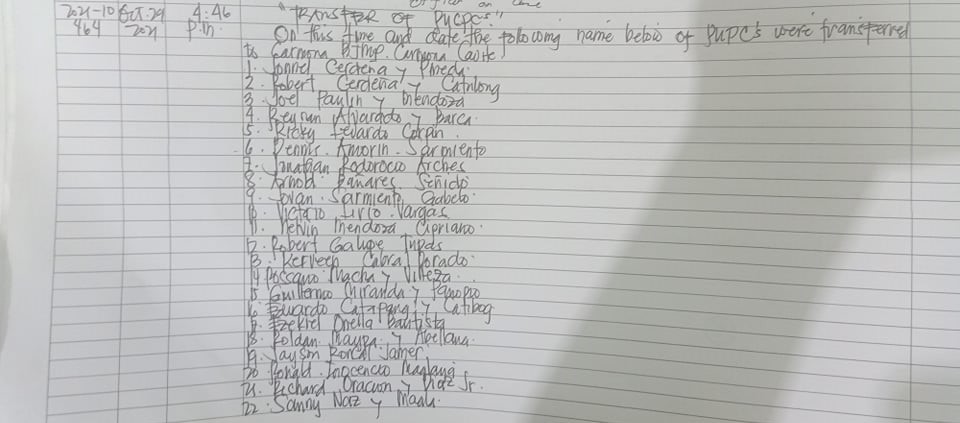 2021-10 Oct. 29 4:46 "TRANSFER OF PUPC's"
464 2021 P.m. On this time and date the following name below of PUPC's were transferred
to Carmona BJMP. Carmona Cavite.
1. Jonnel Cerdena y Pineda
2. Robert Cerdeña y Catulong
3. Joel Paulin y Mendoza
4. Reynan Alvarado y Barca.
5. Ricky Fevardo Corpin.
6. Dennis. Amorin. Sarmiento
7. Jonathan Rodorocio Arches
8. Arnold. Bañares. Señido
9. Jovan. Sarmiento Gabelo.
10. Victorio Livio. Vargas
11. Melvin Mendoza Cipriano.
12. Robert Galupe Tupas
13. Kerveen Cabral Dorado.
14 Macha y Villeza.
15 Guillermo Miranda y
16. Eduardo Catapang y Catibog
17. Ezekiel Orella Bautista
18. Roldan Maypa. y Abellana.
19. Jayson Roncal Jamer.
20. Ronald. Inocencio Maglang
21. Richard Oracion y Diaz Jr.
22. Sonny Naz y